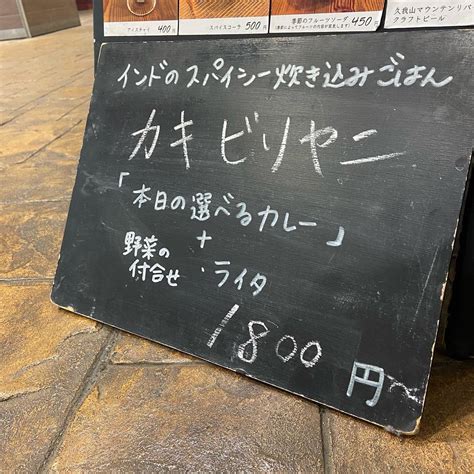 アイスチャイ 400円
スパイスコーラ 500円
季節のフルーツソーダ 450円
久我山マウンテンリバー
クラフトビール
インドのスパイシー炊き込みごはん
カキ ビリヤニ
「本日の選べるカレー」
+
野菜の付合せ・ライタ
1800円〜